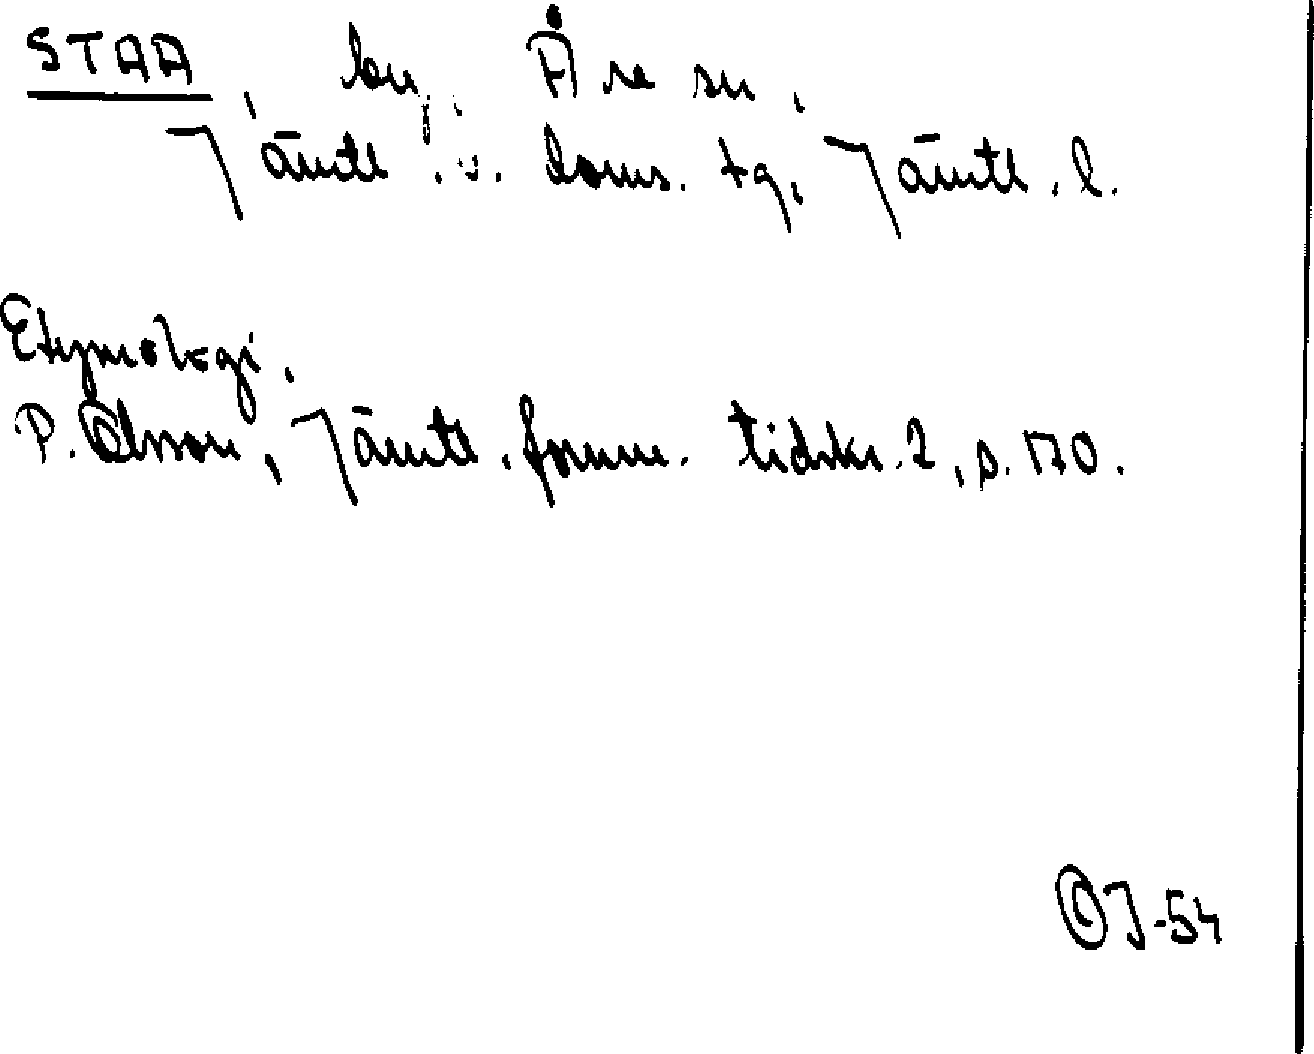 STAA, by, Åre sn,
Jämtl. v. doms. tg, Jämtl. l.
Etymologi.
P. Olsson, Jämtl. fornm. tidskr. 2, s. 170.
OJ-54